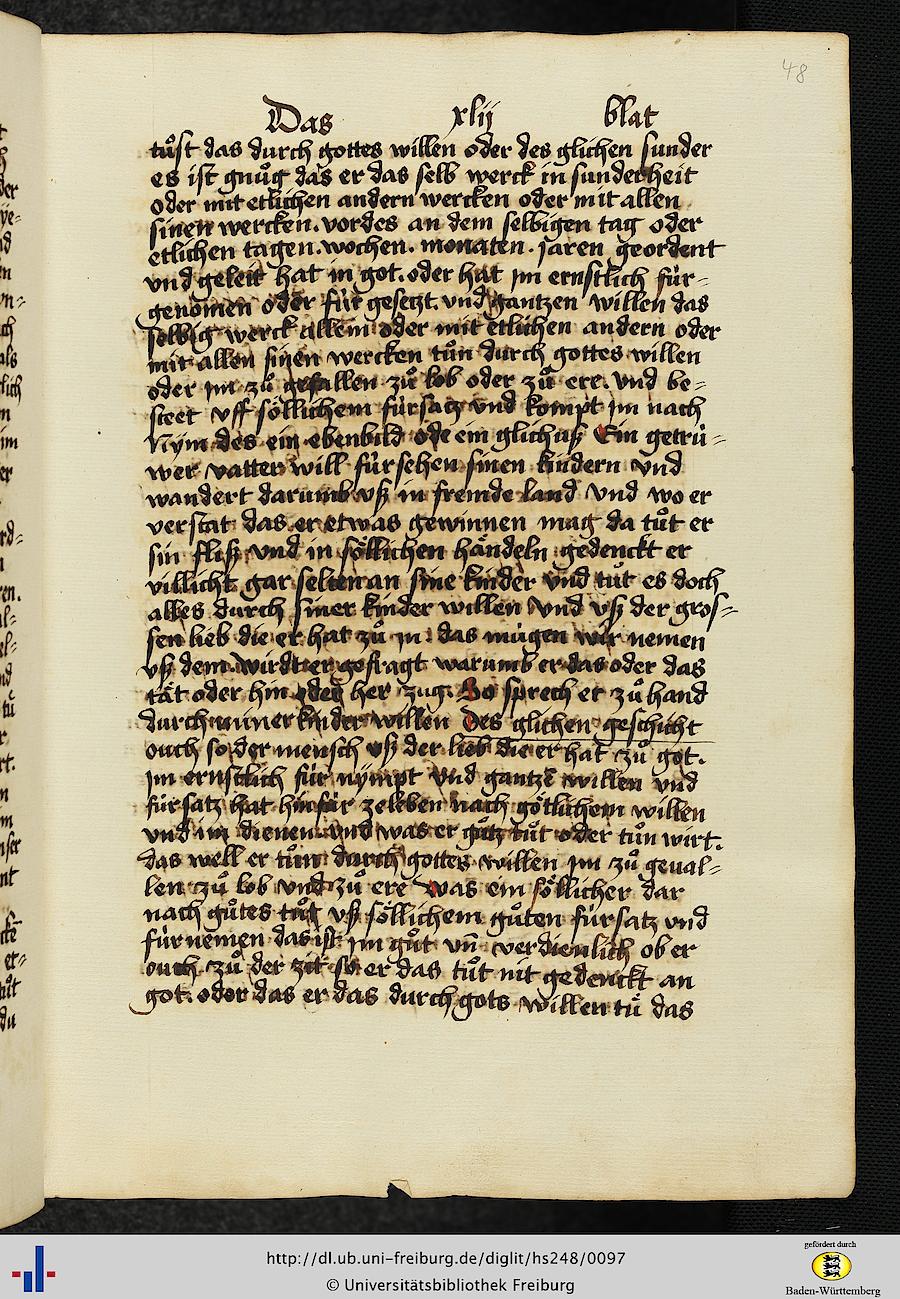 48
Das xlij blat
tuͦst das durch gottes willen oder des glichen sunder
es ist gnuͦg das er das selb werck in sunderheit
oder mit etlichen andern wercken oder mit allen
sinen wercken. vordes an dem selbigen tag oder
etlichen tagen. wochen. monaten. jaren geordent
vnd geleit hat in got. oder hat jm ernstlich für-
genomen oder für gesetzt vnd gantzen willen das
selbig werck allein oder mit etlichen andern oder
mit allen sinen wercken tuͦn durch gottes willen
oder jm zuͦ gefallen zuͦ lob oder zuͦ ere. vnd be=
steet vff söllichem fürsatz vnd kompt jm nach
Nym des ein ebenbild ode ein glichnuß Ein getrü=
wer vatter will fürsehen sinen kindern vnd
wandert darumb vß in fremde land vnd wo er
verstat das er etwas gewinnen mag da tuͦt er
sin fliß vnd in söllichen händeln gedenckt er
villicht gar selten an sine kinder vnd tuͦt es doch
alles durch siner kinder willen vnd vß der gros=
sen lieb die er hat zuͦ jn das mügen wir nemen
vß dem. wirdt er gefragt warumb er das oder das
tät oder hin oder her zug. So sprech er zuͦ hand
durch miner kinder willen Des glichen geschicht
ouch so der mensch vß der lieb die er hat zuͦ got.
jm ernstlich für nympt vnd gantzē willen vnd
fürsatz hat hinfür zeleben nach götlichem willen
vnd im dienen vnd was er guͦtz tuͦt oder tuͦn wirt.
das well er tuͦn durch gottes willen jm zuͦ geual=
len zuͦ lob vnd zuͦ ere was ein söllicher dar
nach guͦtes tuͦt vß söllichem guͦten fürsatz vnd
fürnemen das ist jm guͦt vn̄ verdienlich ob er
ouch zuͦ der zit so er das tuͦt nit gedenckt an
got. oder das er das durch gots willen tuͤ das
http://dl.ub.uni-freiburg.de/diglit/hs248/0097
© Universitätsbibliothek Freiburg
gefördert durch
Baden-Württemberg